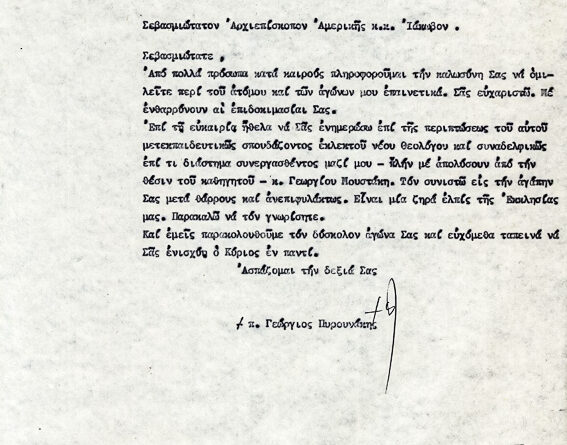 Σεβασμιώτατον Ἀρχιεπίσκοπον Ἀμερικῆς κ.κ. Ἰάκωβον .
Σεβασμιώτατε ,
Ἀπό πολλά πρόσωπα κατά καιρούς πληροφοροῦμαι τήν καλωσύνη Σας νά ὁμι-
λεῖτε περί τοῦ ἀτόμου καί τῶν ἀγώνων μου ἐπαινετικά. Σᾶς εὐχαριστῶ. Μέ
ἐνθαρρύνουν αἱ ἐπιδοκιμασίαι Σας.
Ἐπί τῇ εὐκαιρίᾳ ἤθελα νά Σᾶς ἐνημερώσω ἐπί τῆς περιπτώσεως τοῦ αὐτοῦ
μετεκπαιδευτικῶς σπουδάζοντος ἐκλεκτοῦ νέου θεολόγου καί συναδελφικῶς
ἐπί τι διάστημα συνεργασθέντος μαζί μου - πλήν μέ ἀπολύσουν ἀπό τήν
θέσιν τοῦ καθηγητοῦ - κ. Γεωργίου Μουστάκη. Τόν συνιστῶ εἰς τήν ἀγάπην
Σας μετά θάρρους καί ἀνεπιφυλάκτως. Εἶναι μία ζηρά ἐλπίς τῆς Ἐκκλησίας
μας. Παρακαλῶ νά τόν γνωρίσητε.
Καί ἐμεῖς παρακολουθοῦμε τόν δύσκολον ἀγῶνα Σας καί εὐχόμεθα ταπεινά νά
Σᾶς ἐνισχύῃ ὁ Κύριος ἐν παντί.
Ἀσπάζομαι τήν δεξιά Σας
+ π. Γεώργιος Πυρουνάκης